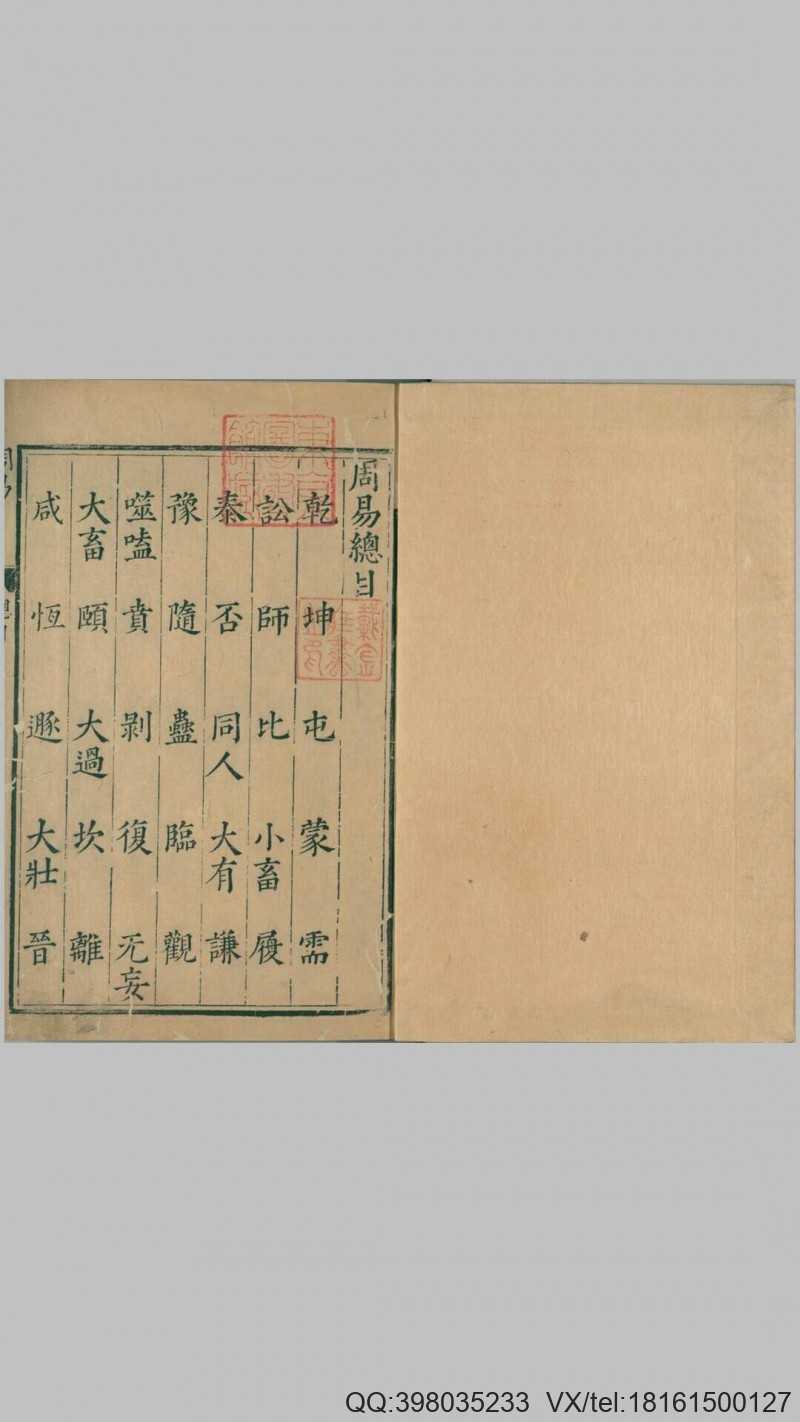 周易總目
乾 坤 屯 蒙 需
訟 師 比 小畜 履
泰 否 同人 大有 謙
豫 隨 蠱 臨 觀
噬嗑 賁 剥 復 无妄
大畜 頤 大過 坎 離
咸 恆 遯 大壯 晉
QQ:398035233 VX/tel:18161500127